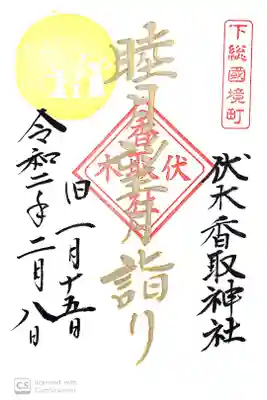 下総國境町
伏木香取神社
睦月望月詣り
伏木
香取社
旧一月十五日
令和二年二月八日
CS Scanned with
CamScanner